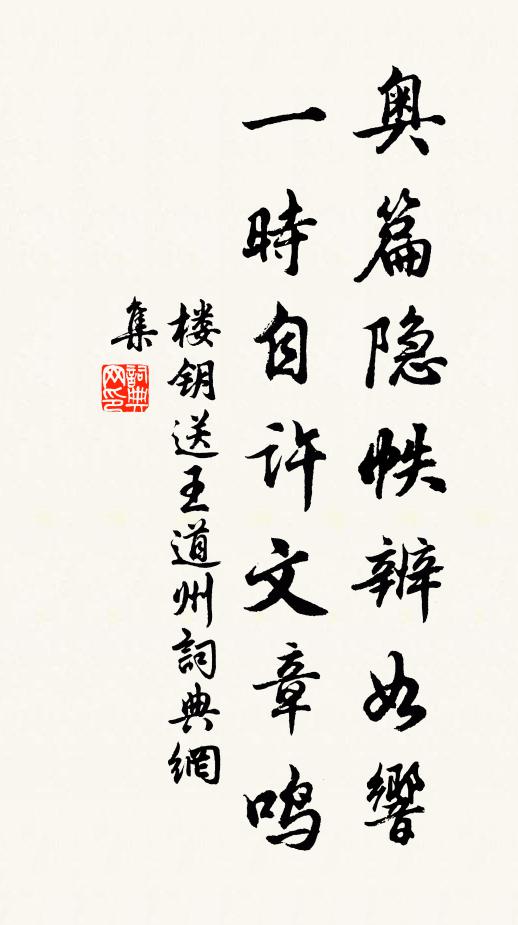 奥篇隐帙辨如響
一時自许文章鸣
楼钥送王道州詞典網
集
詞典網印